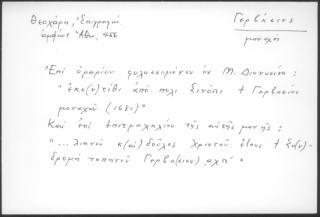 Θεοχάρη, Ἐπιγραφαί
ἀμφίων Ἄθω, 456
Γερβάσιος
μοναχός
Ἐπί ὀραρίου φυλασσομένου ἐν Μ. Διονυσίου:
"ἐκε(ν)τίθι ἀπό πολι Σινόπι + Γερβασίου
μοναχοῦ (1680)"
Καί ἐπί ἐπιτραχηλίου τῆς αὐτῆς μονῆς:
"...λιανοῦ κ(αὶ) δοῦλος Χριστοῦ ἔτους + Συ(ν)-
δρομή ταπητοῦ Γερβα(σίου) αχπ'"